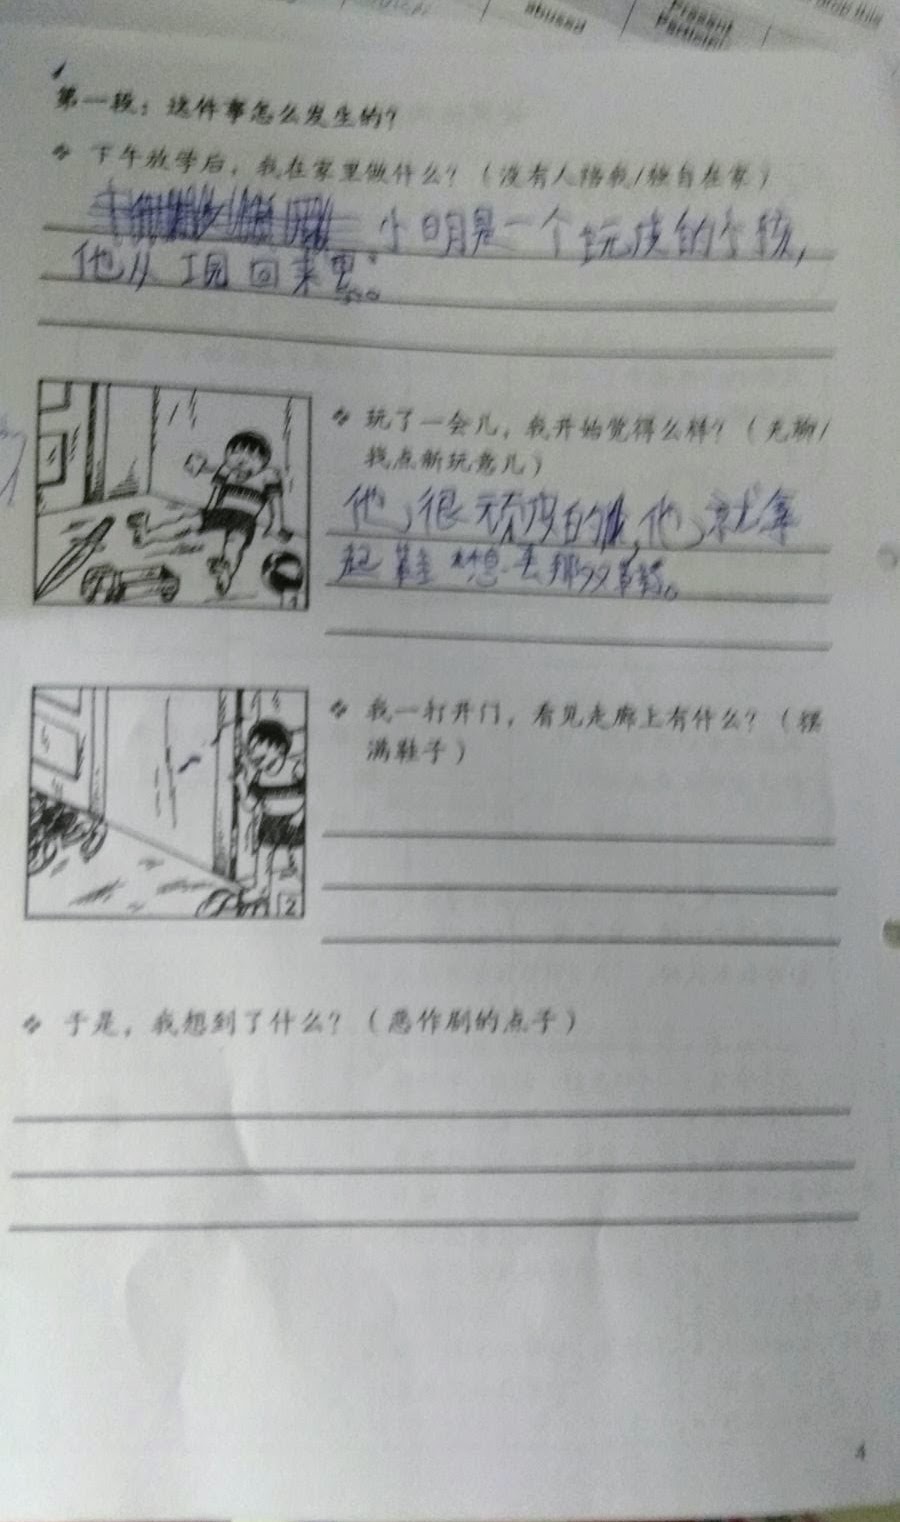 abused
Present
Participle
第一段：这件事怎么发生的？
下午放学后，我在家里做什么？（没有人陪我/独自在家）
小明是一个玩皮的个孩，
他从 回家里。
玩了一会儿，我开始觉得么样？（无聊/
找点新玩意儿）
他很顽皮的 他就拿
起鞋想去那
我一打开门，看见走廊上有什么？（摆
满鞋子）
1
2
于是，我想到了什么？（恶作剧的点子）
4